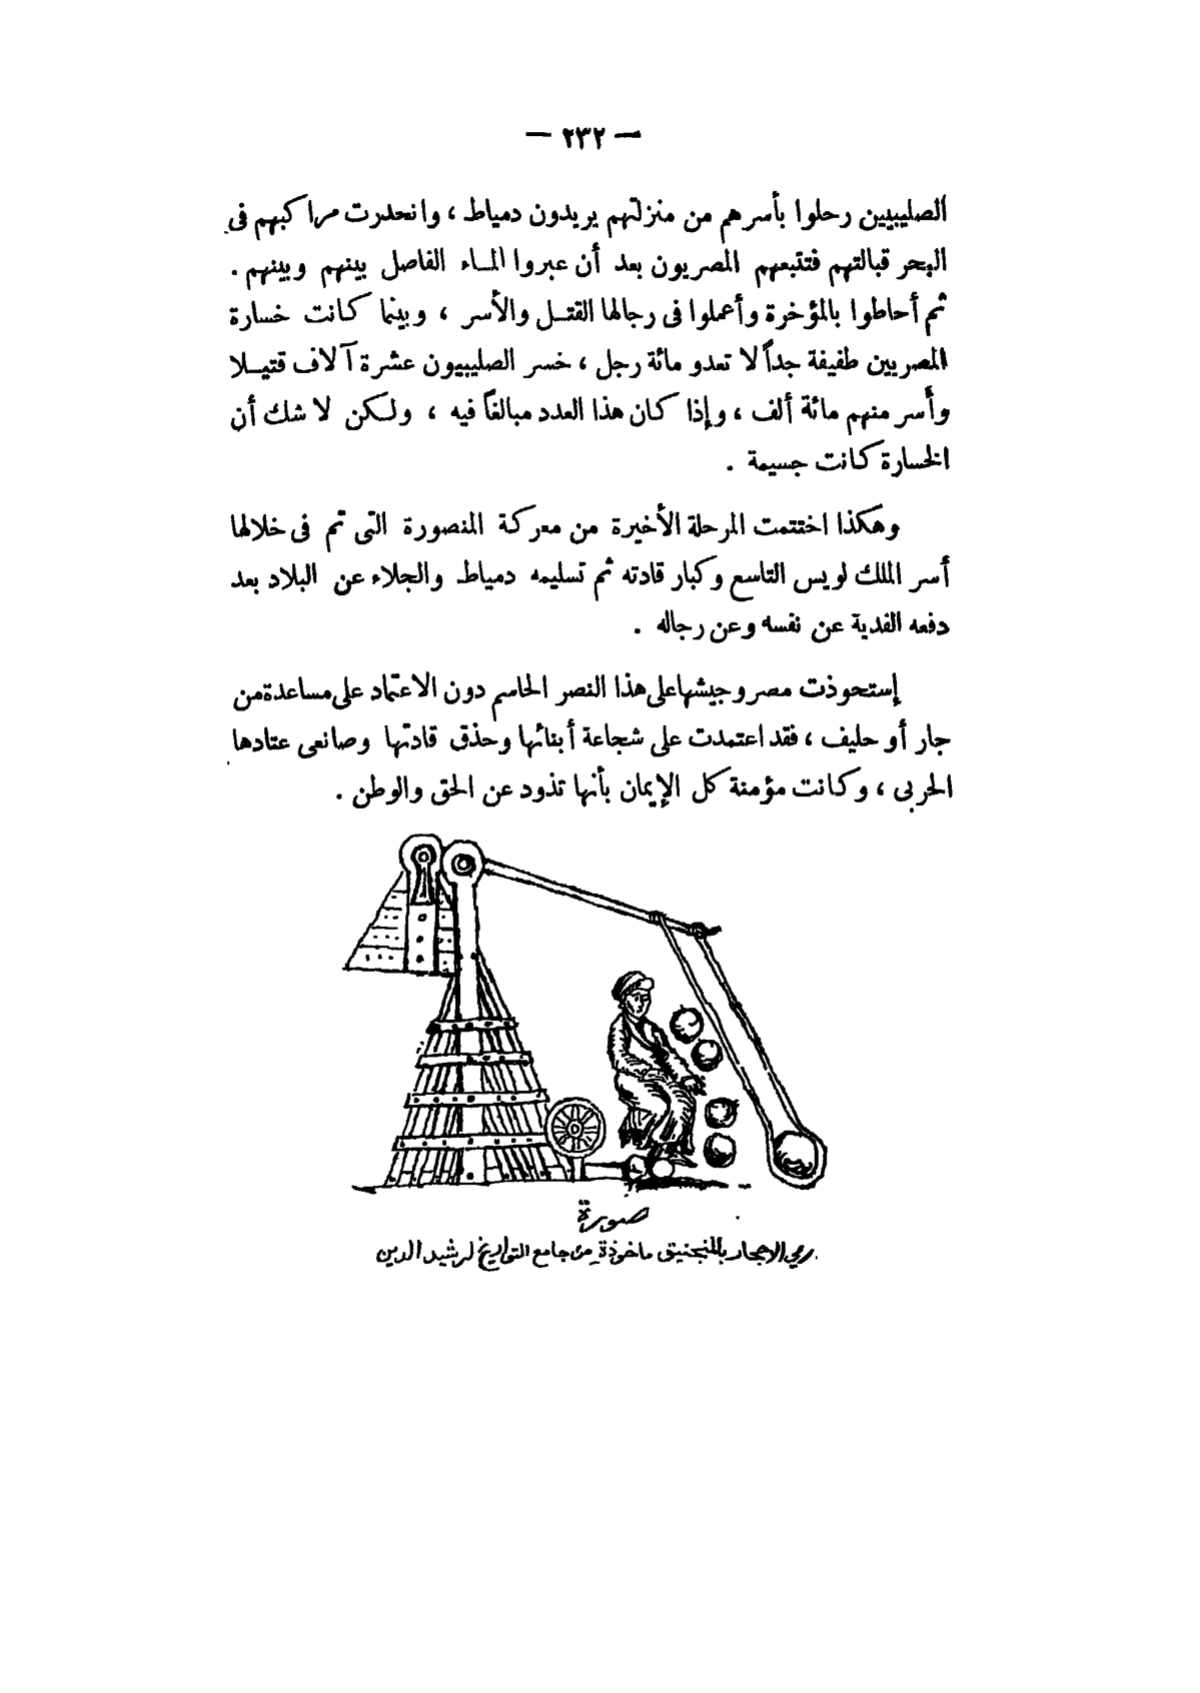 — ٢٣٢ —
الصليبيين رحلوا بأسرهم من منزلتهم يريدون دمياط ، وانحدرت مراكبهم فى
البحر قبالتهم فتتبعهم المصريون بعد أن عبروا المـاء الفاصل بينهم وبينهم .
ثم أحاطوا بالمؤخرة وأعملوا فى رجالها القتـل والأسر ، وبينما كانت خسارة
المصريين طفيفة جداً لا تعدو مائة رجل ، خسر الصليبيون عشرة آلاف قتيـلا
وأسر منهم مائة ألف ، وإذا كان هذا العدد مبالغاً فيه ، ولـكن لا شك أن
الخسارة كانت جسيمة .
وهكذا اختتمت المرحلة الأخيرة من معركة المنصورة التى تم فى خلالها
أسر الملك لويس التاسع وكبار قادته ثم تسليمه دمياط والجلاء عن البلاد بعد
دفعه الفدية عن نفسه وعن رجاله .
إستحوذت مصر وجيشها على هذا النصر الحاسم دون الاعتماد على مساعدة من
جار أو حليف ، فقد اعتمدت على شجاعة أبنائها وحذق قادتها وصانعى عتادها
الحربى ، وكانت مؤمنة كل الإيمان بأنها تذود عن الحق والوطن .
صورة
رمي الاحجار بالمنجنيق ماخوذة من جامع التواريخ لرشيد الدين